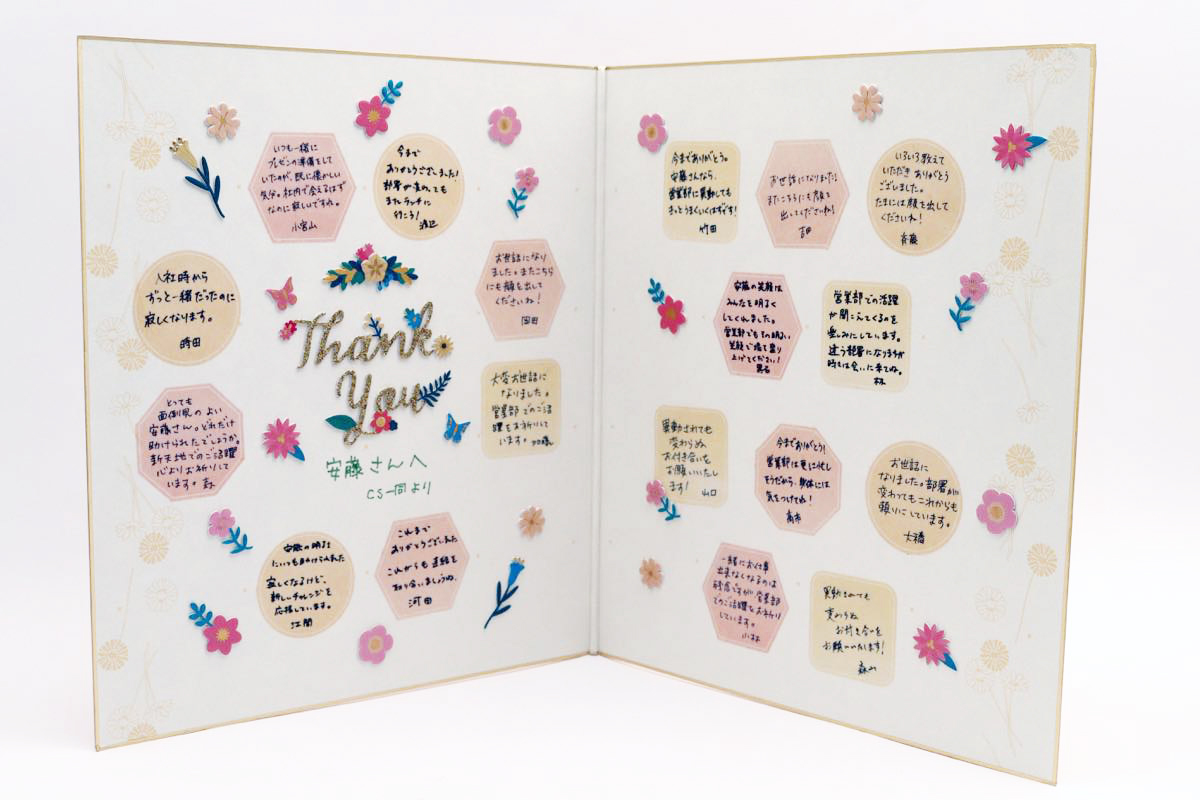 いつも一緒に
プレゼンの準備をして
いたのが、既に懐かしい
気分。社内で会えるはず
なのに寂しいですね。
小宮山
今まで
ありがとうございました!
部署が変わっても
またランチに
行こう!
渡辺
入社時から
ずっと一緒だったのに
寂しくなります。
時田
お世話になり
ました。またこちら
にも顔を出して
くださいね!
岡田
Thank
You
とっても
面倒見のよい
安藤さん。どれだけ
助けられたでしょうか。
新天地でのご活躍
心よりお祈りして
います。森
大変お世話に
なりました。
営業部でのご活
躍をお祈りして
います。加藤
安藤さんへ
CS一同より
安藤の明るさ
にいつも助けられました
寂しくなるけど、
新しいチャレンジを
応援しています。
江間
これまで
ありがとうございました
これからも連絡を
取り合いましょうね。
河田
今までありがとう。
安藤さんなら、
営業部に異動しても
きっとうまくいくはずです!
竹田
お世話になりました!
またこちらにも顔を
出してくださいね!
いろいろ教えて
いただきありがとう
ございました。
たまには顔を出して
くださいね!
斉藤
安藤の笑顔は
みんなを明るく
してくれました。
営業部でもその明るい
笑顔で場を盛り
上げてください!
営業部での活躍
が聞こえてくるのを
楽しみにしています。
違う部署になりますが
時々は会いに来てね。
林
異動されても
変わらぬ
お付き合いを
お願いいたし
ます!
山口
今までありがとう!
営業部は更に忙し
そうだから、身体には
気をつけてね!
高市
お世話に
なりました。部署が
変わってもこれからも
頼りにしています。
大橋
一緒にお仕事
出来なくなるのは
残念ですが、営業部
でのご活躍をお祈り
しています。
小林
異動されても
変わらぬ
お付き合いを
お願いいたします!
森山